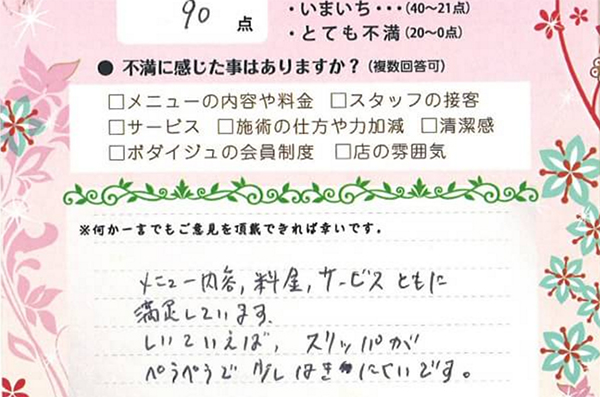 90 点
・いまいち・・・(40〜21点)
・とても不満(20〜0点)
● 不満に感じた事はありますか？(複数回答可)
□メニューの内容や料金 □スタッフの接客
□サービス □施術の仕方や力加減 □清潔感
□ボダイジュの会員制度 □店の雰囲気
※何か一言でもご意見を頂戴できれば幸いです。
メニュー内容,料金,サービスともに
満足しています.
しいていえば, スリッパが
ぺらぺらで少しはきにくいです。